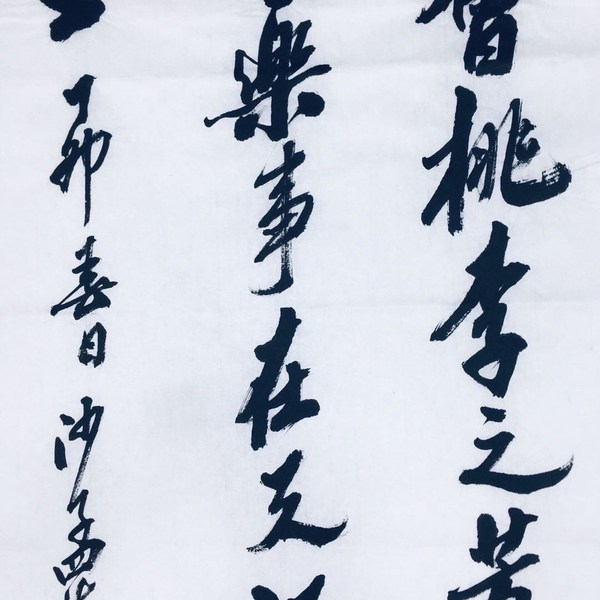 會桃李之芳
樂事在
丁卯春日沙孟